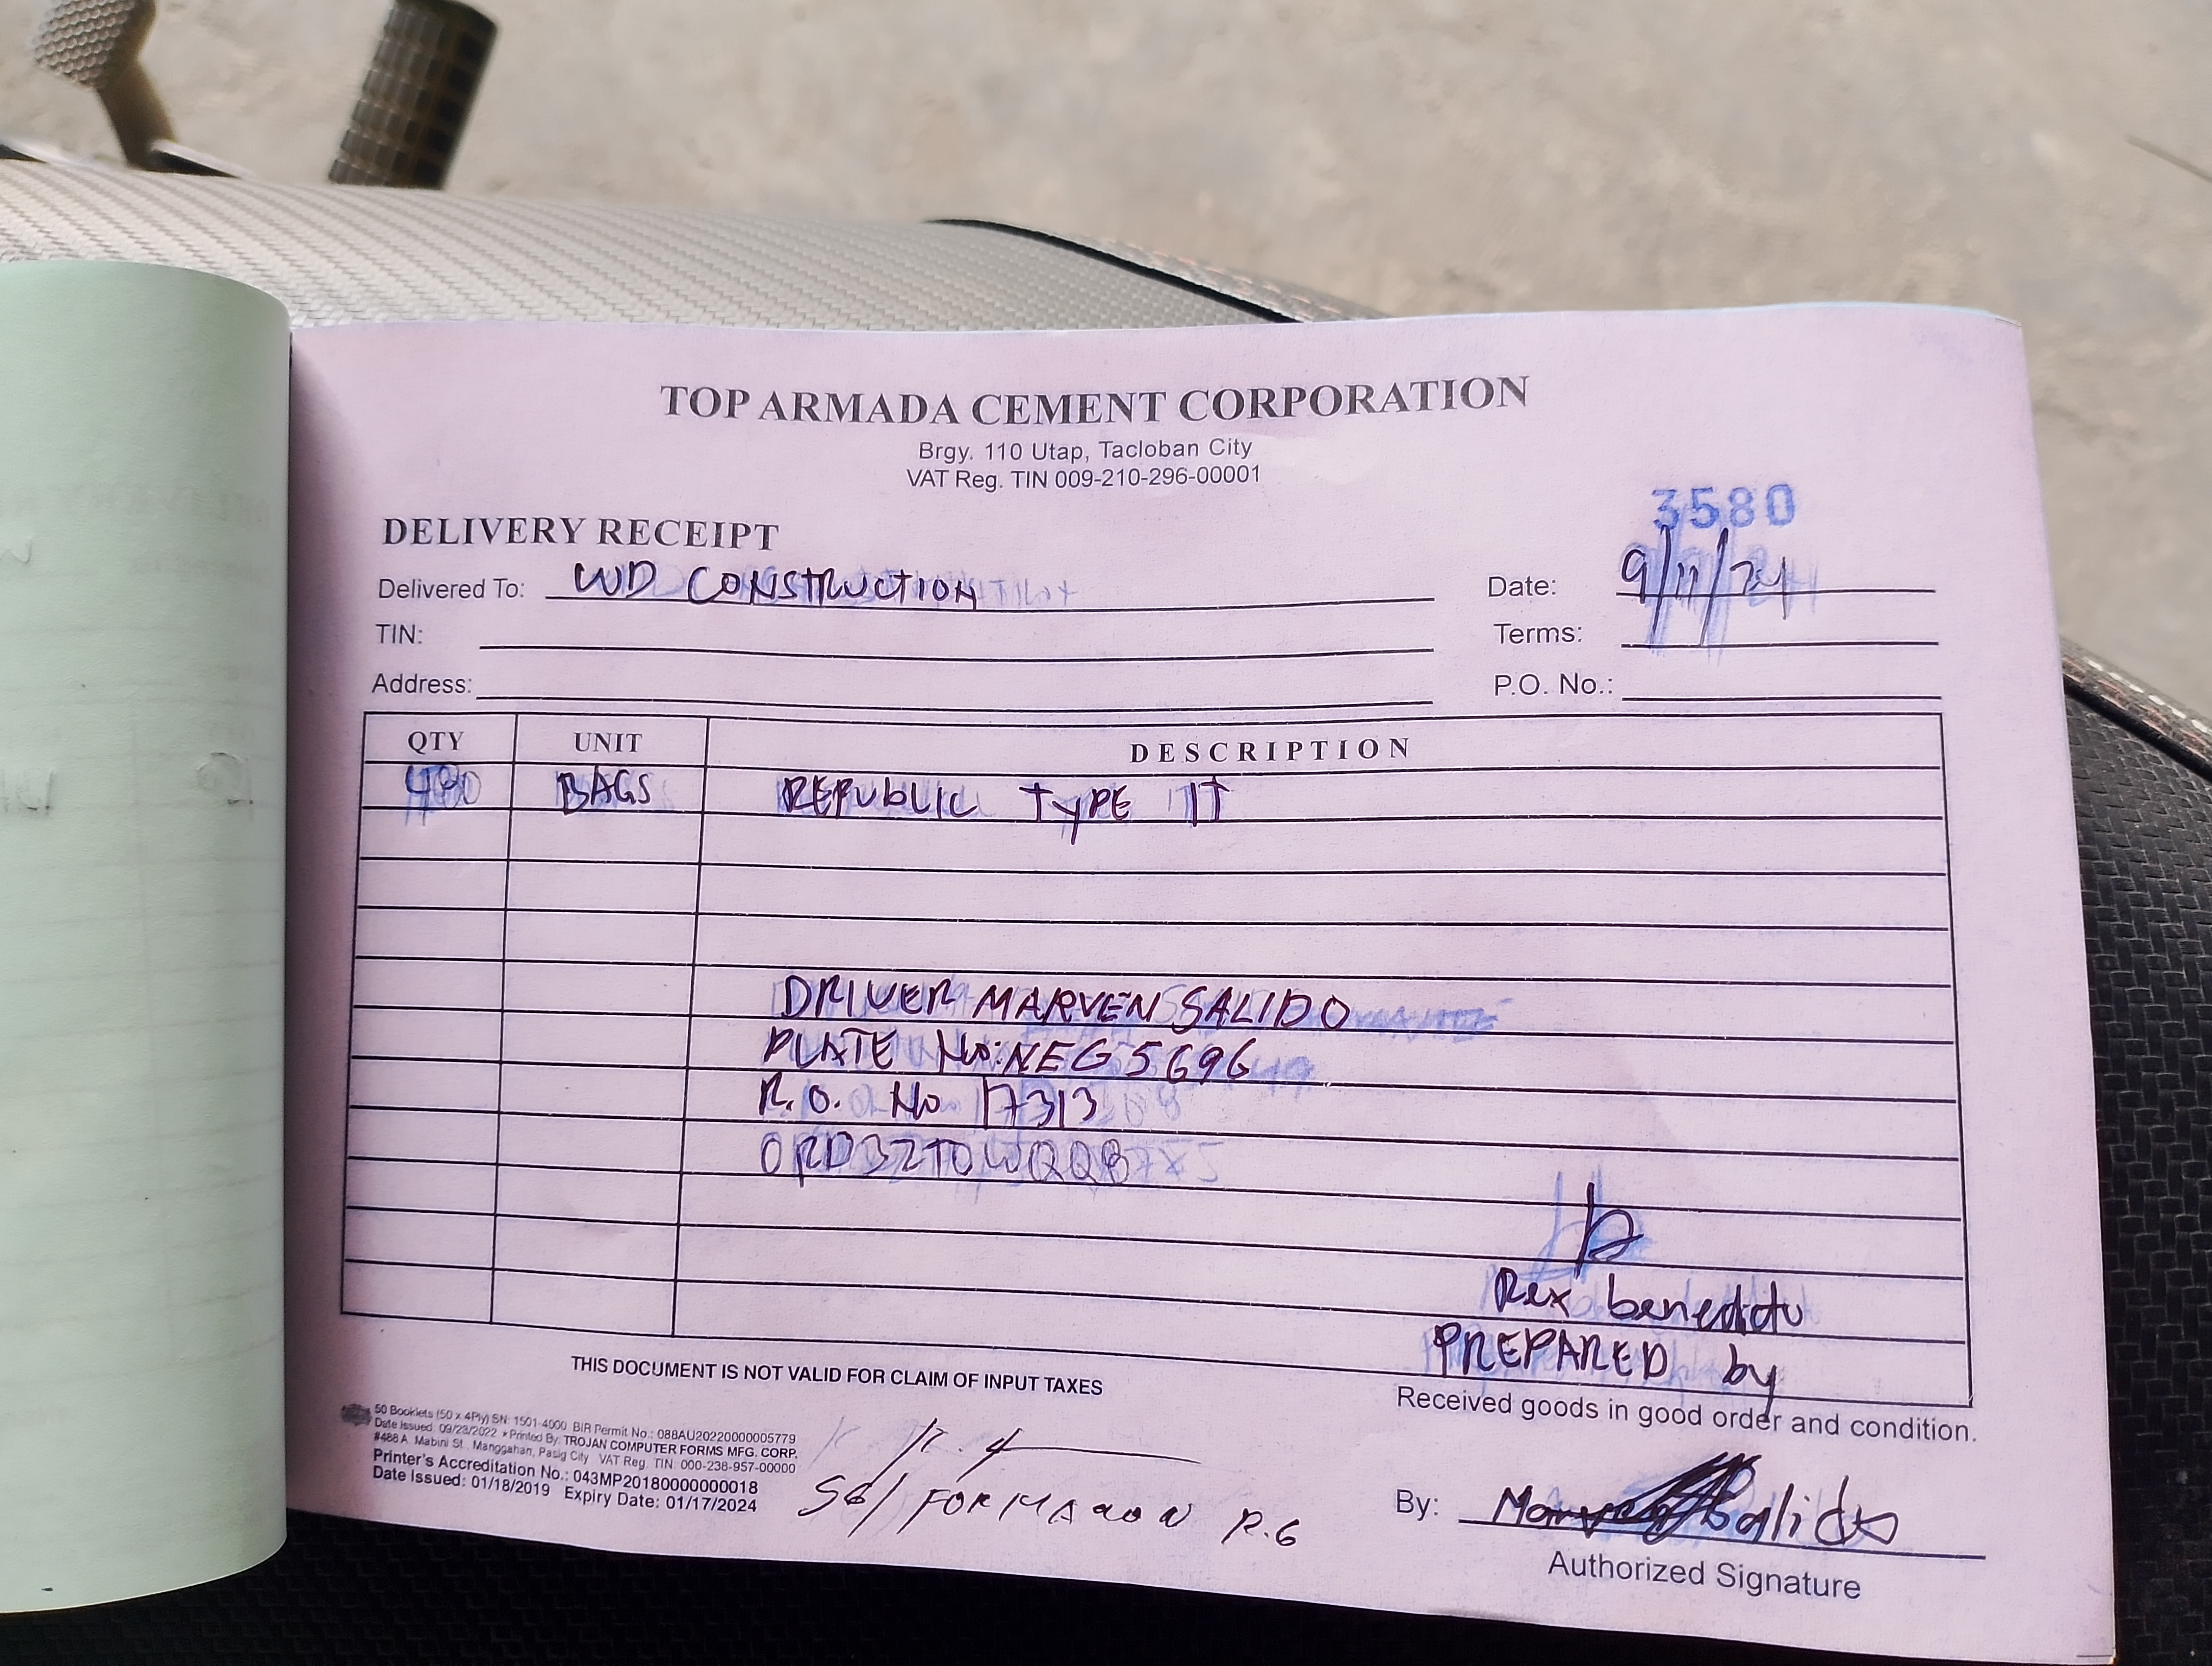 TOP ARMADA CEMENT CORPORATION
Brgy. 110 Utap, Tacloban City
VAT Reg. TIN 009-210-296-00001
3580
DELIVERY RECEIPT
Delivered To: WD CONSTRUCTION
Date: 9/11/24
TIN:
Terms:
Address:
P.O. No.:
QTY UNIT DESCRIPTION
BAGS REPUBLIC TYPE 1T
DRIVER MARVEN SALIDO
PLATE No: NEG 5696
R.O. No 17313
ORD32TOWQQB
Rex benedicto
PREPARED by
THIS DOCUMENT IS NOT VALID FOR CLAIM OF INPUT TAXES
Received goods in good order and condition.
50 Booklets (50 x 4Ply) SN: 1501-4000 BIR Permit No.: 088AU20220000005779
Date Issued: 09/23/2022 • Printed By: TROJAN COMPUTER FORMS MFG. CORP.
#488 A. Mabini St. Manggahan, Pasig City VAT Reg. TIN: 000-238-957-00000
Printer's Accreditation No.: 043MP20180000000018
Date Issued: 01/18/2019 Expiry Date: 01/17/2024
SG/ R.G
By: Marven Salido
Authorized Signature